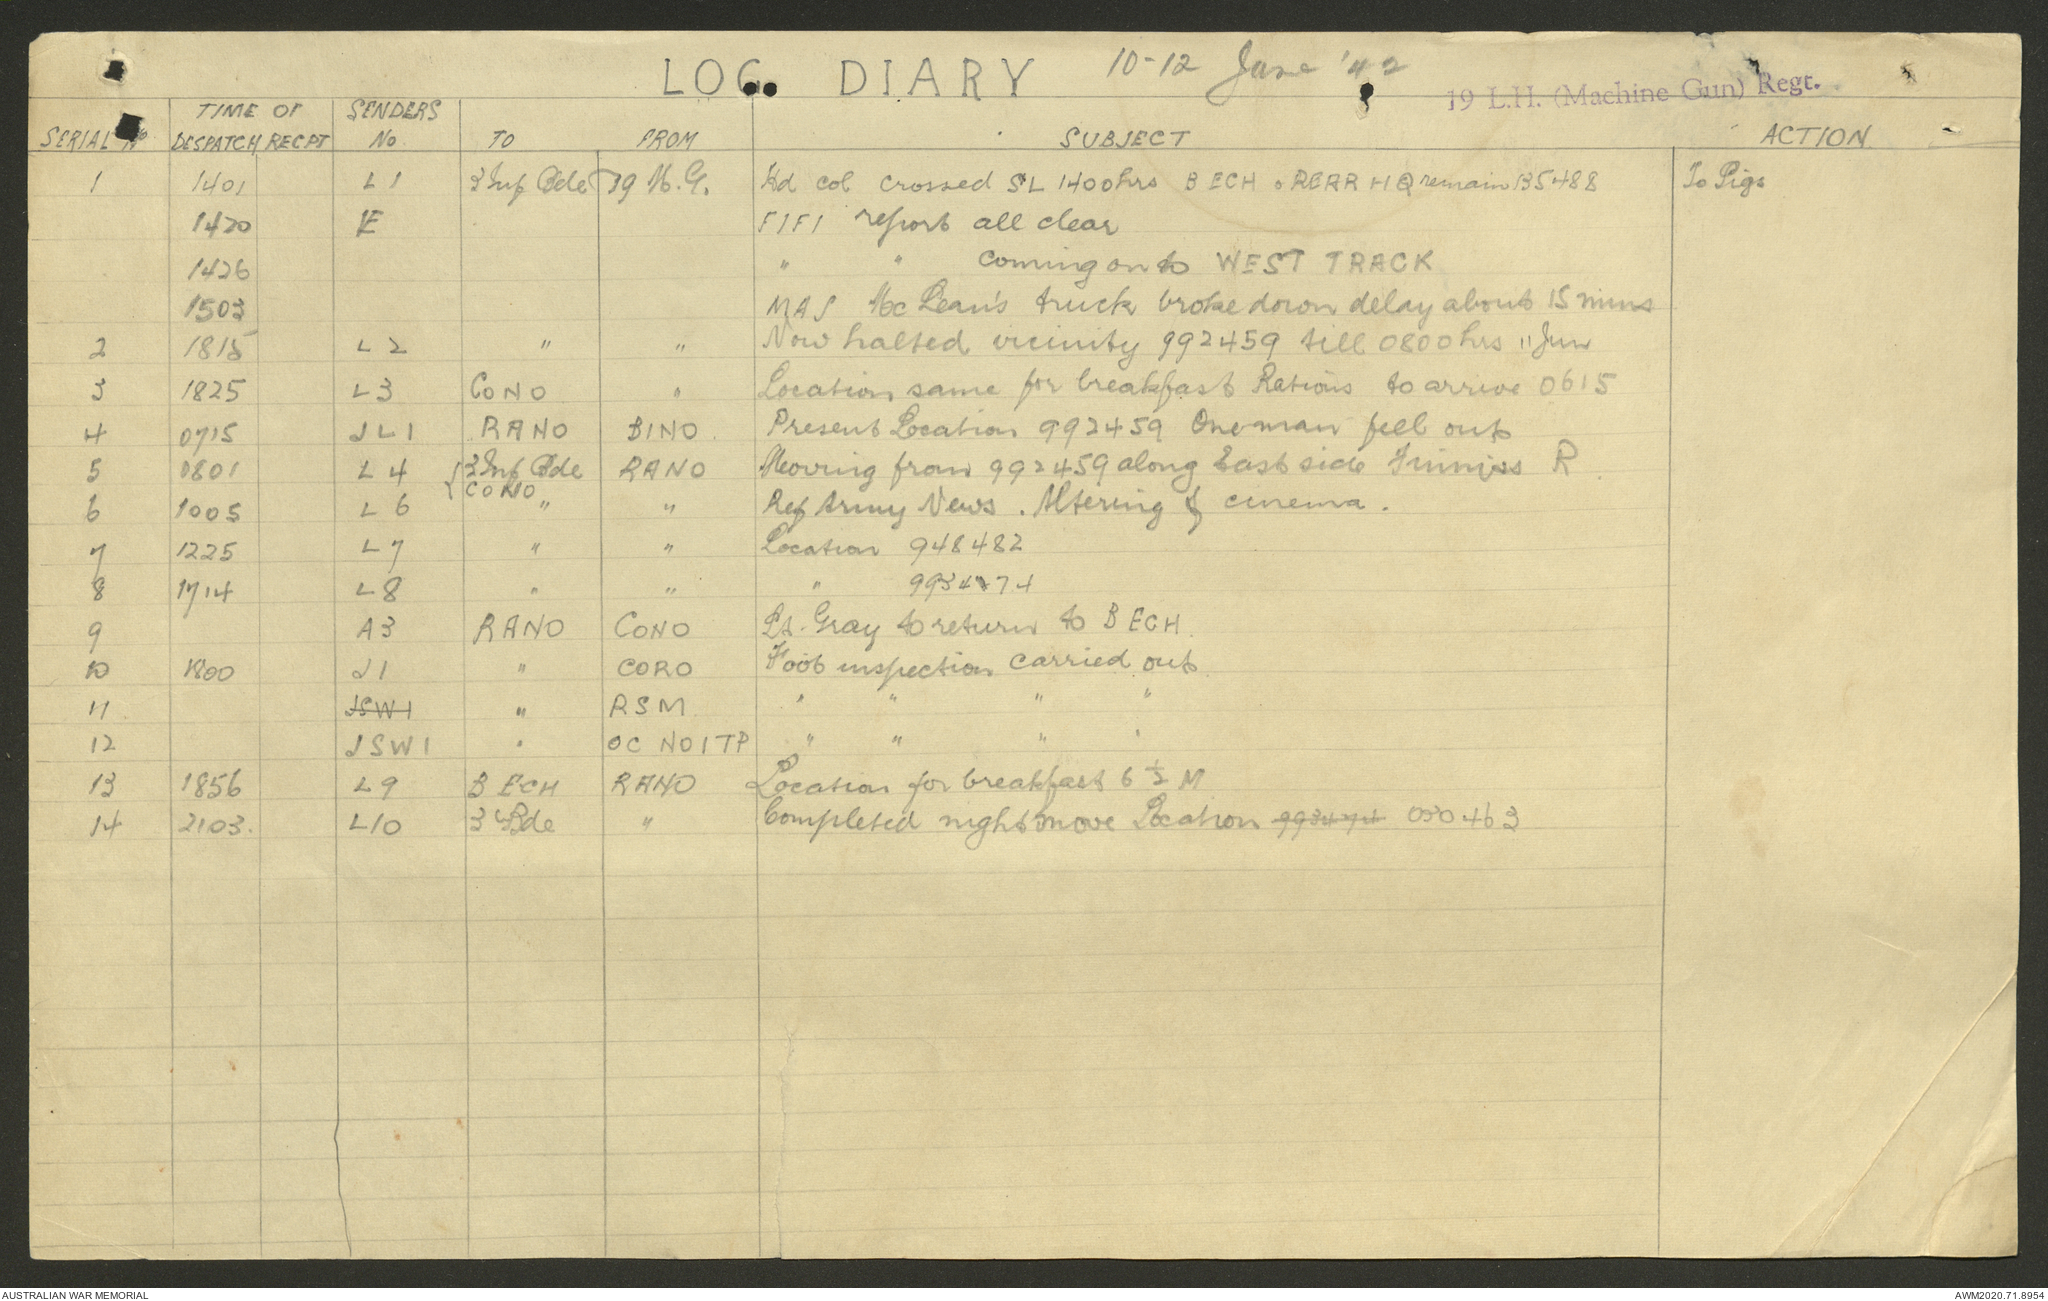 LOG. DIARY 10-12 June '42
19 L.H. (Machine Gun) Regt.
TIME OF SENDERS
SERIAL No DESPATCH RECPT No TO FROM SUBJECT ACTION
1 1401 L1 3 Inf Bde 19 M.G. Hd col crossed SL 1400hrs B ECH & REAR HQ remain 135488 To Pigs
1420 E FIFI report all clear
1426 " " coming on to WEST TRACK
1503 MAJ McLean's truck broke down delay about 15 mins
2 1815 L2 " " Now halted vicinity 992459 till 0800hrs 11 Jun
3 1825 L3 CONO " Location same for breakfast Rations to arrive 0615
4 0715 JL1 RANO BINO Present Location 992459 One man fell out
5 0801 L4 { 3 Inf Bde RANO Moving from 992459 along East side Finniss R
CONO
6 1005 L6 " " Ref Army News. Altering of cinema.
7 1225 L7 " " Location 948482
8 1714 L8 " " " 993474
9 A3 RANO CONO Lt. Gray to return to B ECH.
10 1800 J1 " CORO Foot inspection carried out
11 JSW1 " RSM " " " "
12 JSW1 " OC NO1TP " " " "
13 1856 L9 B ECH RANO Location for breakfast 6½ M
14 2103. L10 3 Bde " Completed night move Location 993474 030463
AUSTRALIAN WAR MEMORIAL AWM2020.71.8954